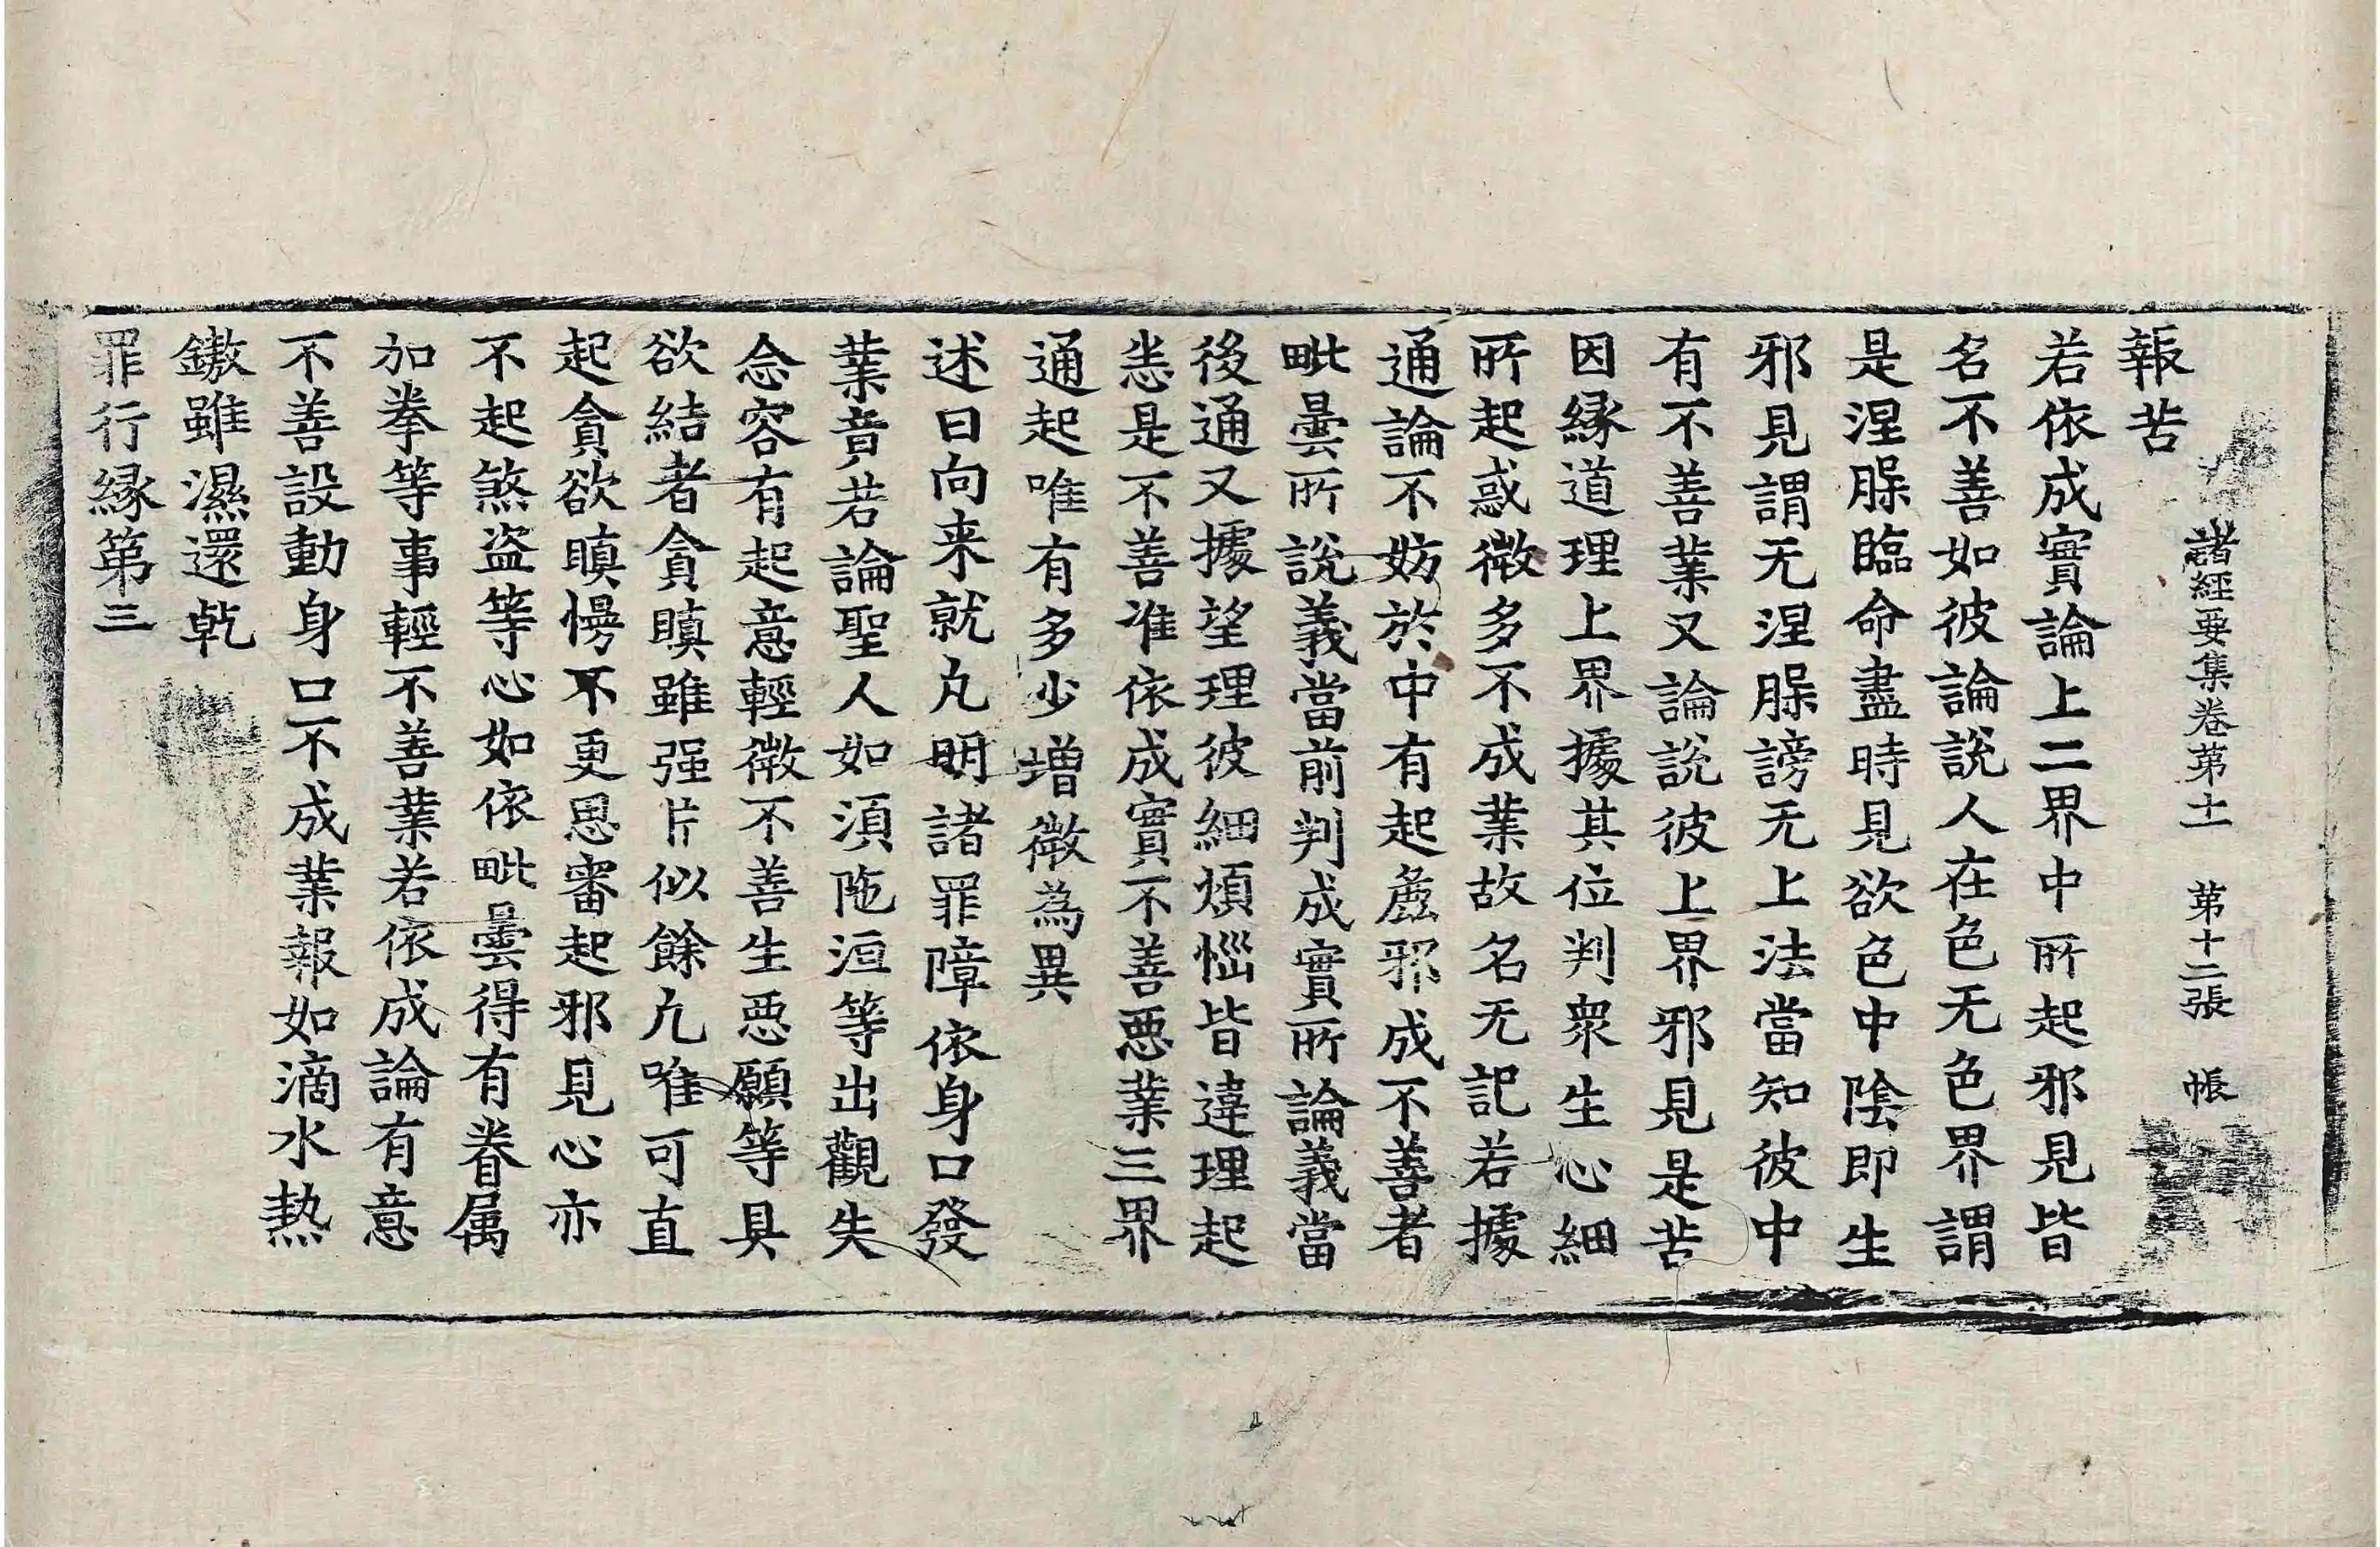 諸經要集卷第十一 第十二張 帳
報苦
若依成實論上二界中所起邪見皆
名不善如彼論說人在色无色界謂
是涅𦙁臨命盡時見欲色中陰即生
邪見謂无涅𦙁謗无上法當知彼中
有不善業又論說彼上界邪見是苦
因緣道理上界據其位判衆生心細
所起惑微多不成業故名无記若據
通論不妨於中有起麁邪成不善者
毗曇所說義當前判成實所論義當
後通又據望理彼細煩惱皆違理起
恙是不善准依成實不善惡業三界
通起唯有多少增微為異
述曰向来就凡明諸罪障依身口發
業音若論聖人如湏陁洹等出觀失
念容有起意輕微不善生惡願等具
欲結者貪瞋雖强片似餘凢唯可直
起貪欲瞋慢不更思審起邪見心亦
不起煞盗等心如依毗曇得有眷属
加拳等事輕不善業若依成論有意
不善設動身口不成業報如滴水熱
鏊雖濕還乾
罪行緣第三